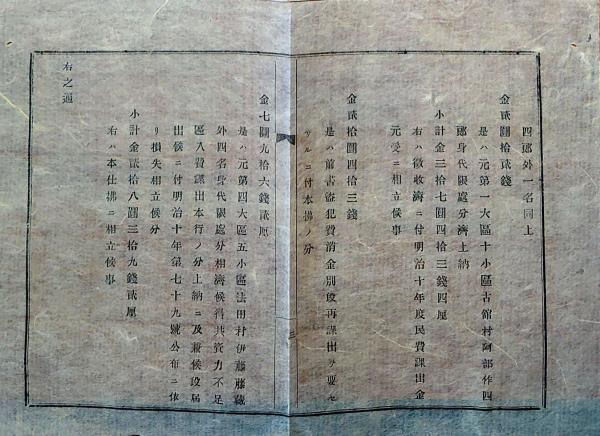 四郎外一名同上
金貳圓拾貳錢
是ハ元第一大區十小區古館村阿部作四
郎身代限處分濟上納
小計金三拾七圓四拾三錢四厘
右ハ徴收濟ニ付明治十年度民費課出金
元受ニ相立候事
金貳拾圓四拾三錢
是ハ前書盜犯費消金別段再課出ヲ要セ
サルニ付本拂ノ分
三
金七圓九拾六錢貳厘
是ハ元第四大區五小區法田村伊藤藤藏
外四名身代限處分相濟候得共資力不足
區入費課出本行ノ分上納ニ及兼候段届
出候ニ付明治十年第七十九號公布ニ依
リ損失相立候分
小計金貳拾八圓三拾九錢貳厘
右ハ本仕拂ニ相立候事
右之通